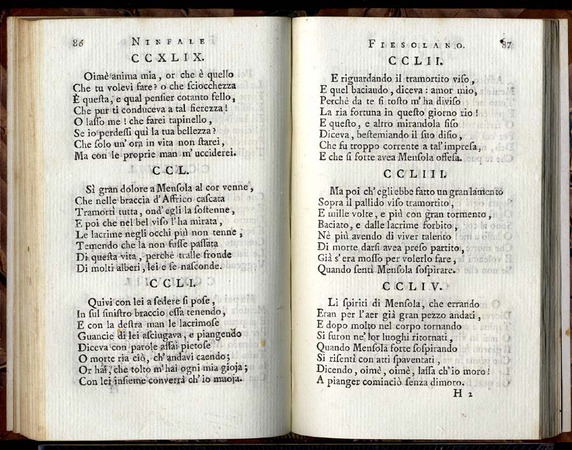 86 NINFALE
CCXLIX.
Oimè anima mia, or che è quello
Che tu volevi fare? o che sciocchezza
È questa, e qual pensier cotanto fello,
Che pur ti conduceva a tal fierezza!
O lasso me! che farei tapinello,
Se io perdessi qui la tua bellezza?
Che solo un' ora in vita non starei,
Ma con le proprie man m' ucciderei.
CCL.
Sì gran dolore a Mensola al cor venne,
Che nelle braccia d' Affrico cascata
Tramortì tutta, ond' egli la sostenne,
E poi che nel bel viso l' ha mirata,
Le lacrime negli occhi più non tenne,
Temendo che la non fusse passata
Di questa vita, perchè tralle fronde
Di molti alberi, lei e se nasconde.
CCLI.
Quivi con lei a sedere si pose,
In sul sinistro braccio essa tenendo,
E con la destra man le lacrimose
Guancie di lei asciugava, e piangendo
Diceva con parole assai pietose
O morte ria ciò, ch' andavi caendo;
Or hai, che tolto m' hai ogni mia gioja;
Con lei insieme converrà ch' io muoja.
FIESOLANO. 87
CCLII.
E riguardando il tramortito viso,
E quel baciando, diceva: amor mio,
Perchè da te sì tosto m' ha diviso
La ria fortuna in questo giorno rio!
E questo, e altro mirandola fiso
Diceva, bestemiando il suo disio,
Che fu troppo corrente a tal' impresa,
E che sì forte avea Mensola offesa.
CCLIII.
Ma poi ch' egli ebbe fatto un gran lamento
Sopra il pallido viso tramortito,
E mille volte, e più con gran tormento,
Baciato, e dalle lacrime forbito,
Nè più avendo di viver talento
Di morte darsi avea preso partito,
Già s' era mosso per volerlo fare,
Quando sentì Mensola sospirare.
CCLIV.
Li spiriti di Mensola, che errando
Eran per l' aer già gran pezzo andati,
E dopo molto nel corpo tornando
Si furon ne' lor luoghi ritornati,
Quando Mensola forte sospirando
Si risentì con atti spaventati,
Dicendo, oimè, oimè, lassa ch' io moro!
A pianger cominciò senza dimoro.
H 2